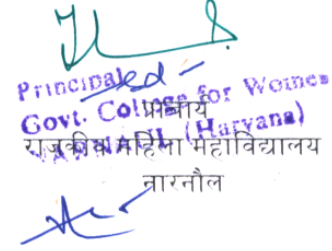 Principal
sd -
Govt. College for Women
प्राचार्य
NARNAUL (Haryana)
राजकीय महिला महाविद्यालय
नारनौल